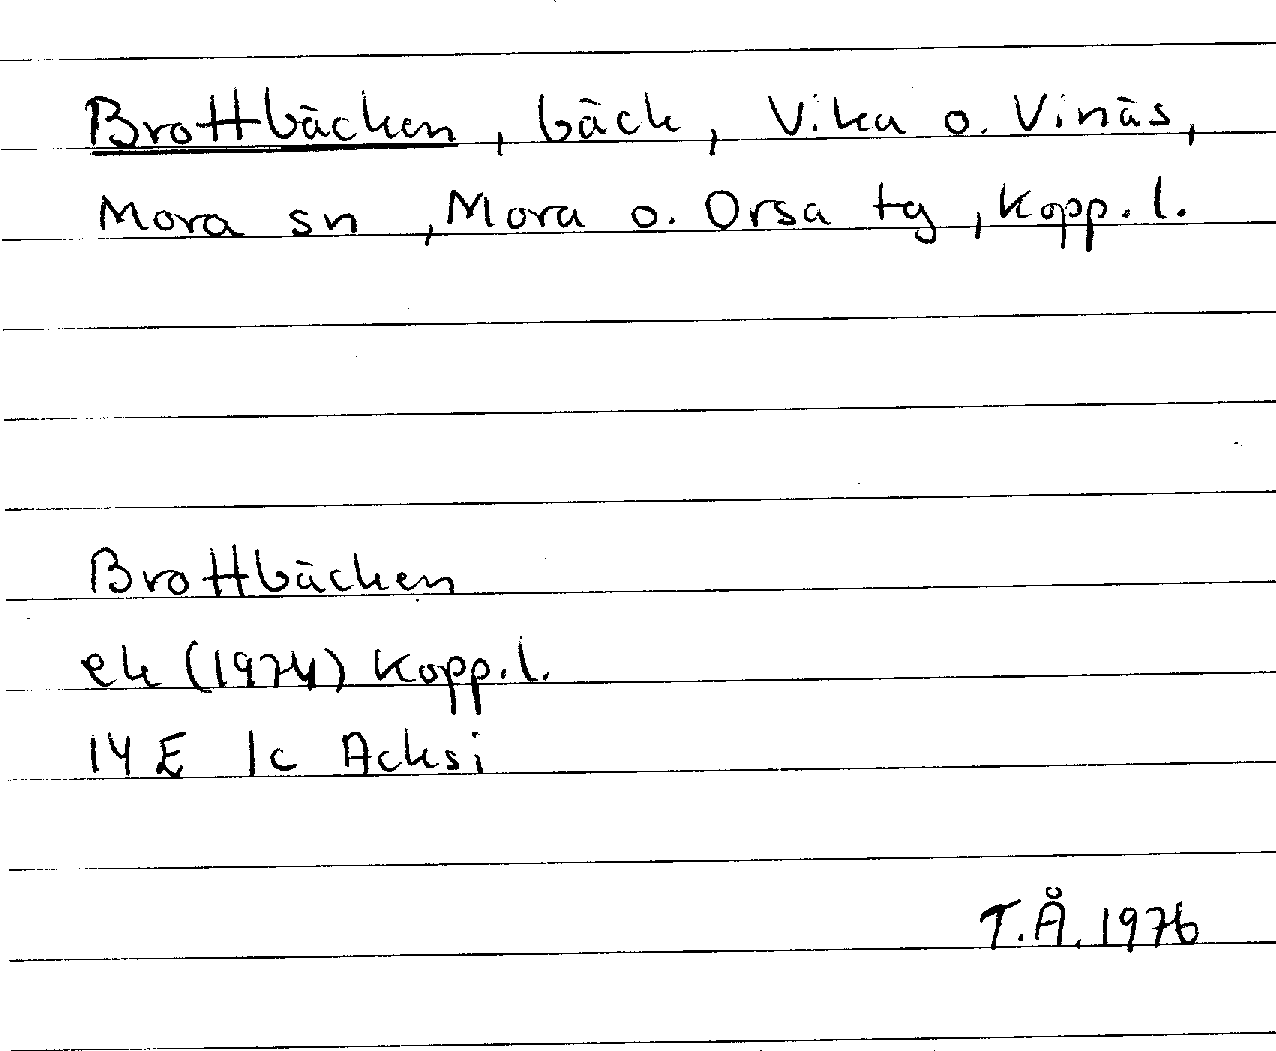 Brottbäcken, bäck, Vika o. Vinäs,
Mora sn, Mora o. Orsa tg, Kopp. l.
Brottbäcken
ek (1974) Kopp. l.
14 E 1c Acksi
T.Å. 1976